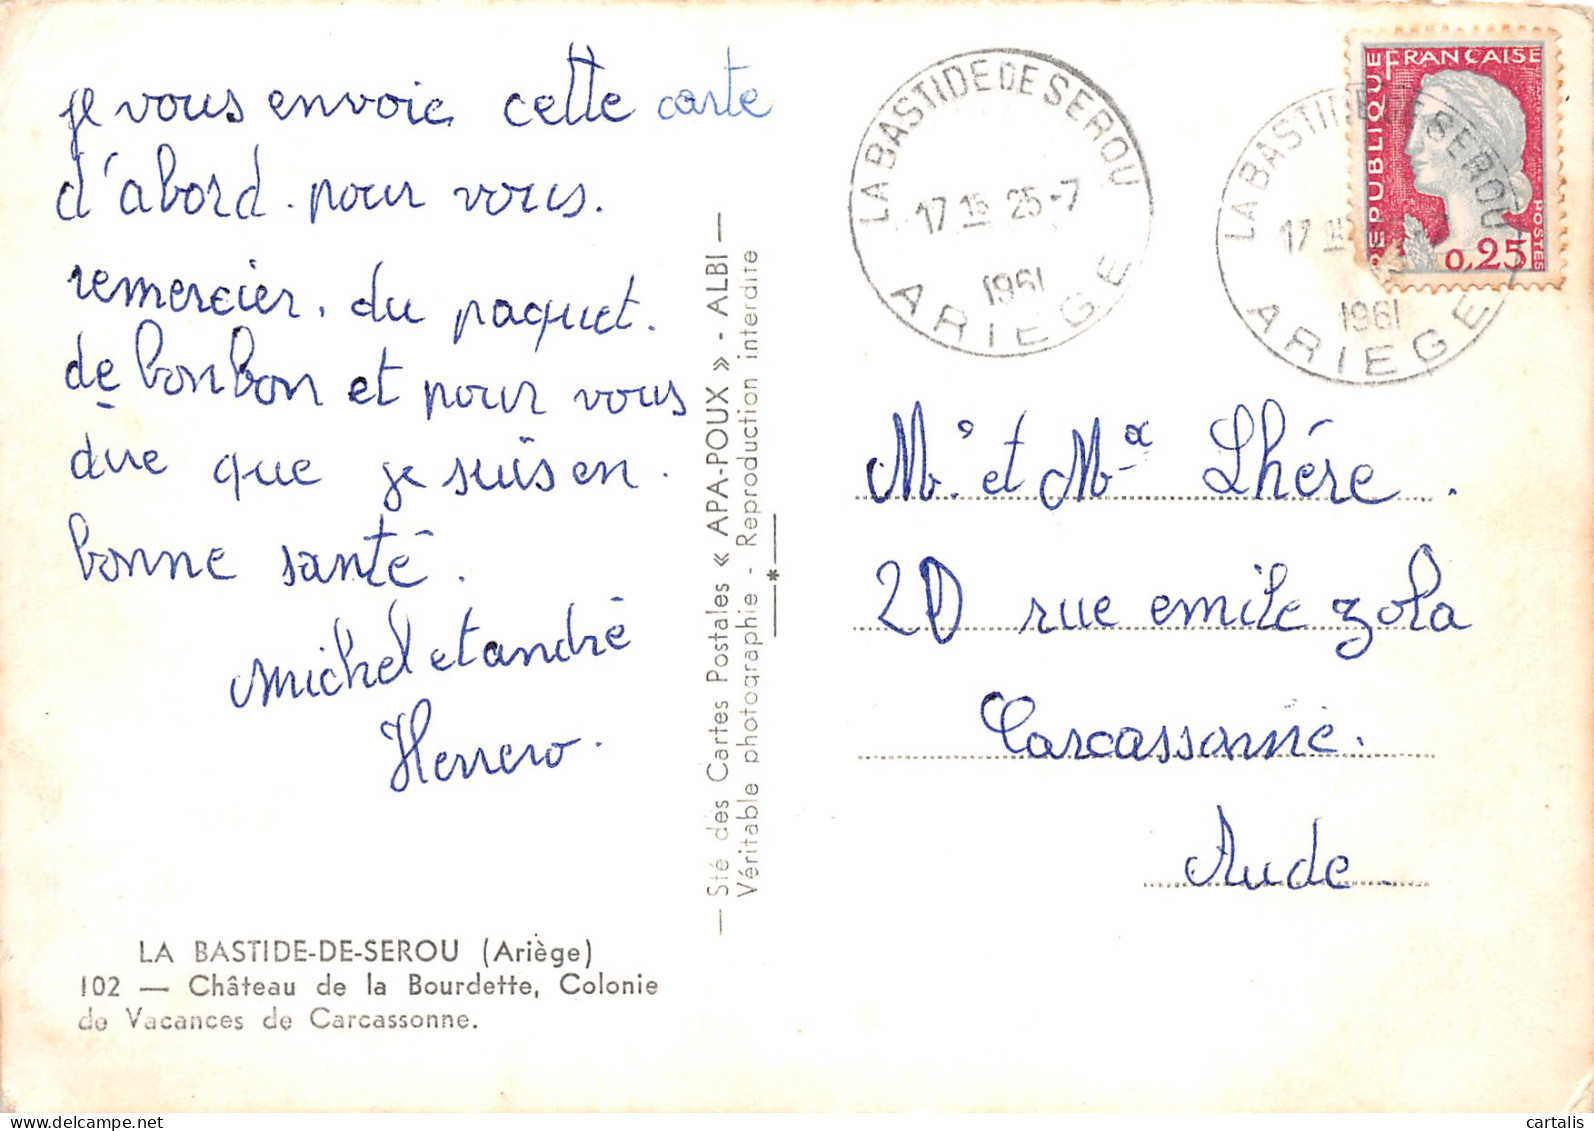 je vous envoie cette carte
d'abord. pour vous.
remercier. du paquet.
de bonbon et pour vous
dire que je suis en.
bonne santé.
michel et andré
Herrero.
LA BASTIDE-DE-SEROU (Ariège)
102 — Château de la Bourdette, Colonie
de Vacances de Carcassonne.
— Sté des Cartes Postales « APA-POUX » - ALBI —
Véritable photographie - Reproduction interdite
LA BASTIDE DE SEROU
17 15 25-7
1961
ARIEGE
LA BASTIDE DE SEROU
17 15
1961
ARIEGE
REPUBLIQUE FRANÇAISE
POSTES
0,25
Mr. et Me Lhére.
20 rue emile zola
Carcassonne.
Aude.
cartalis